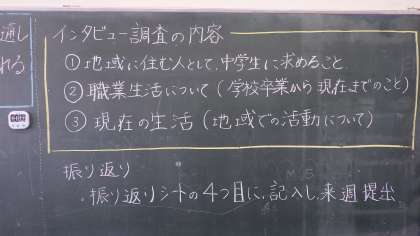 通し
れる
インタビュー調査の内容
①地域に住む人として、中学生に求めること
②職業生活について(学校卒業から現在までのこと)
③現在の生活(地域での活動について)
振り返り
・振り返りシートの4つ目に、記入し、来週提出